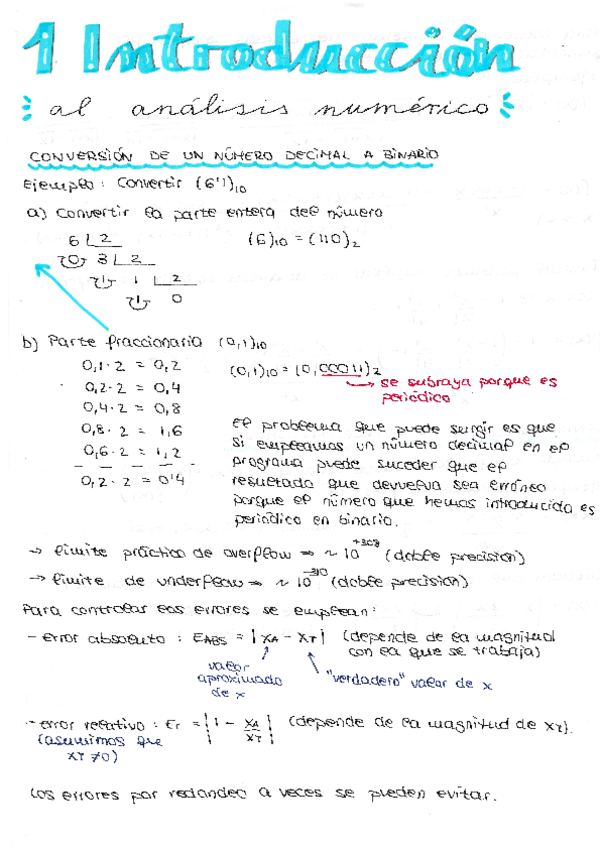 1 Introducción
al análisis numérico
CONVERSIÓN DE UN NÚMERO DECIMAL A BINARIO
Ejemplo: Convertir (6'1)₁₀
a) Convertir la parte entera del número
6 2 (6)₁₀ = (110)₂
0 3 2
1 1 2
1 0
b) Parte fraccionaria (0,1)₁₀
0,1 · 2 = 0,2 (0,1)₁₀ = (0,00011)₂
→ se subraya porque es
periódico
0,2 · 2 = 0,4
0,4 · 2 = 0,8
0,8 · 2 = 1,6
0,6 · 2 = 1,2
0,2 · 2 = 0'4
El problema que puede surgir es que
si empleamos un número decimal en el
programa puede suceder que el
resultado que devuelva sea erróneo
porque el número que hemos introducido es
periódico en binario.
→ límite práctico de overflow → ~ 10⁺³⁰⁸ (doble precisión)
→ límite de underflow → ~ 10 (doble precisión)
Para controlar los errores se emplean:
- error absoluto : EABS = |XA - XT| (depende de la magnitud
con la que se trabaja)
valor
aproximado
de x
"verdadero" valor de x
- error relativo : Er = |1 - XA/XT| (depende de la magnitud de XT).
(asumimos que
XT ≠ 0)
Los errores por redondeo a veces se pueden evitar.